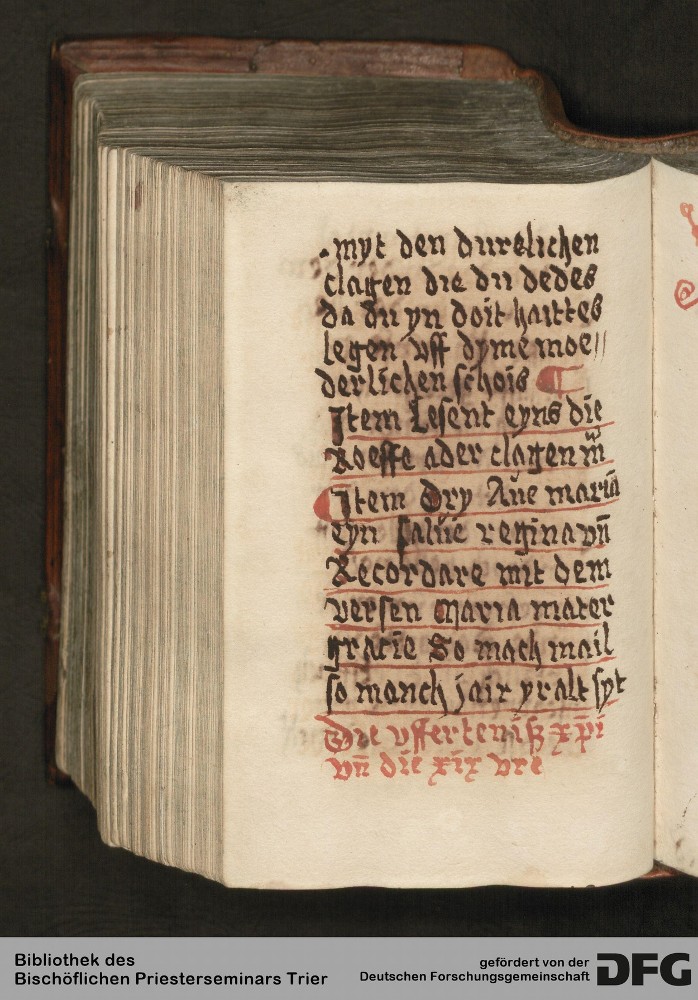 myt den durelichen
clagen die du dedes
da du yn doit haittes
legen vff dyme moe//
derlichen schois
Item Lesent eyns die
Roeffe ader clagen m̄
Item Dry Aue mariā
eyn salue regina vn̄
Recordare mit dem
versen maria mater
gracie So mach mail
so manch jair yr alt syt
Die vfferteniß xp̄i
vn̄ die xix vre
Bibliothek des
Bischöflichen Priesterseminars Trier
gefördert von der
Deutschen Forschungsgemeinschaft DFG